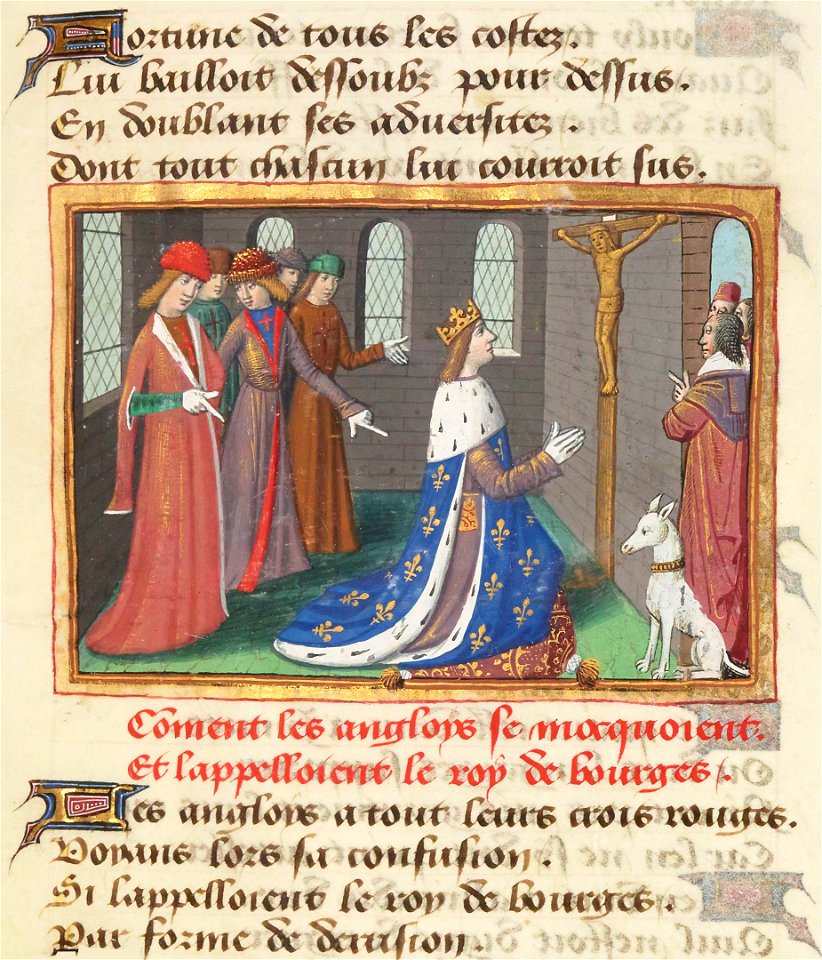 Fortune de tous les costez.
Lui bailloit dessoubz pour dessus.
En doublant ses aduersitez.
Dont tout chascun lui courroit sus.
Coment les angloys se mocquoient.
Et lappelloient le roy de bourges.
Les angloys a tout leurs crois rouges.
Voyans lors sa confusion.
Si lappelloient le roy de bourges.
Par forme de derrision.